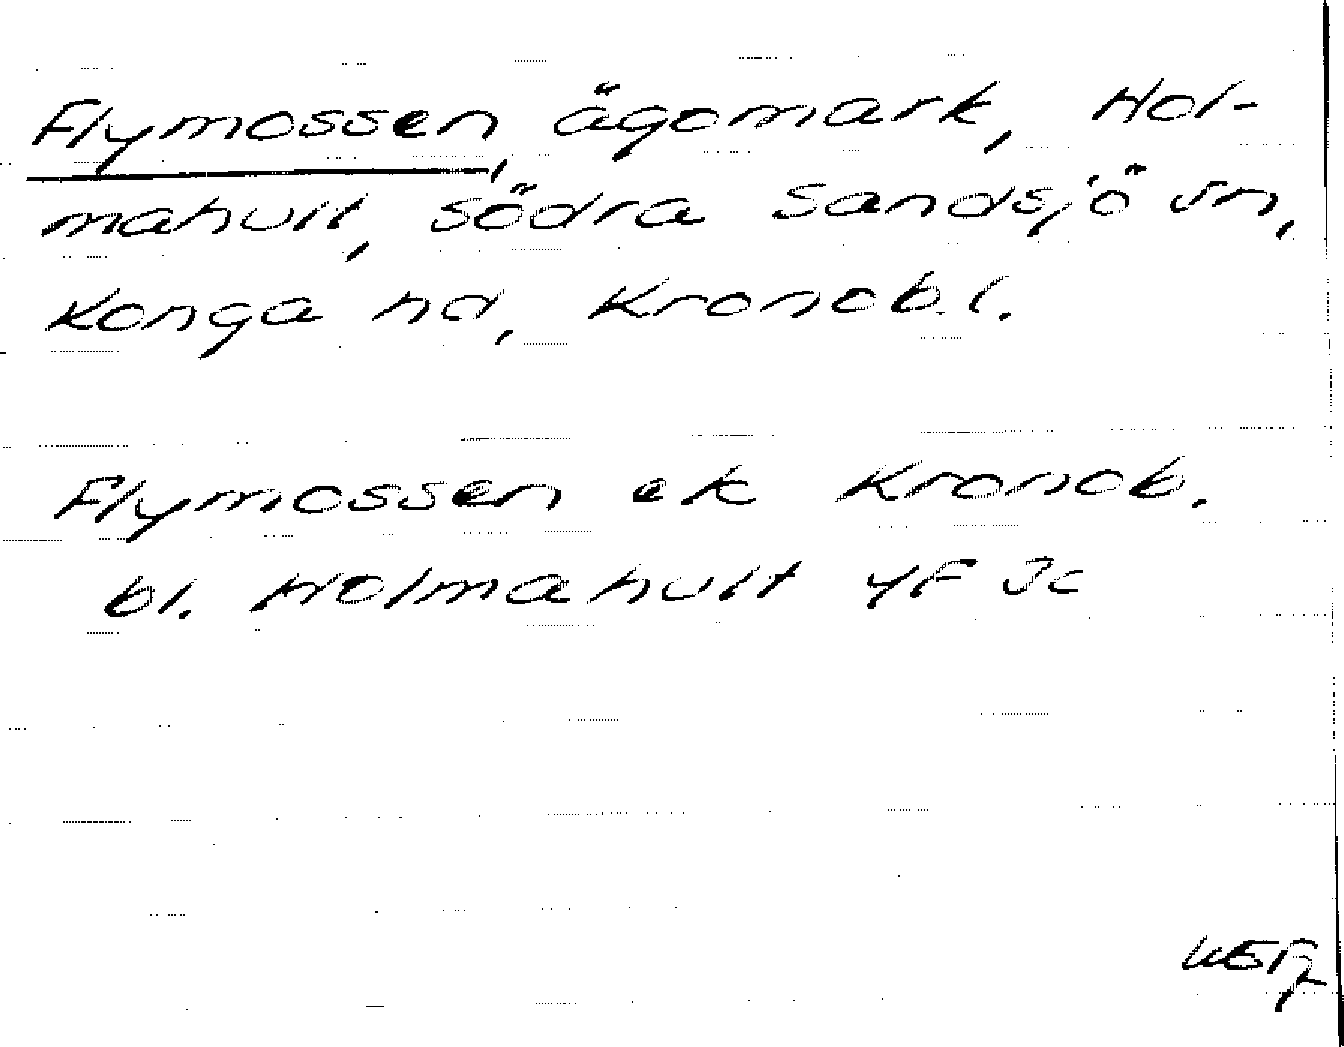 Flymossen, ägomark, Hol-
mahult, södra Sandsjö sn,
Konga hd, Kronob. l.
Flymossen ek Kronob.
bl. Holmahult 4F Jc